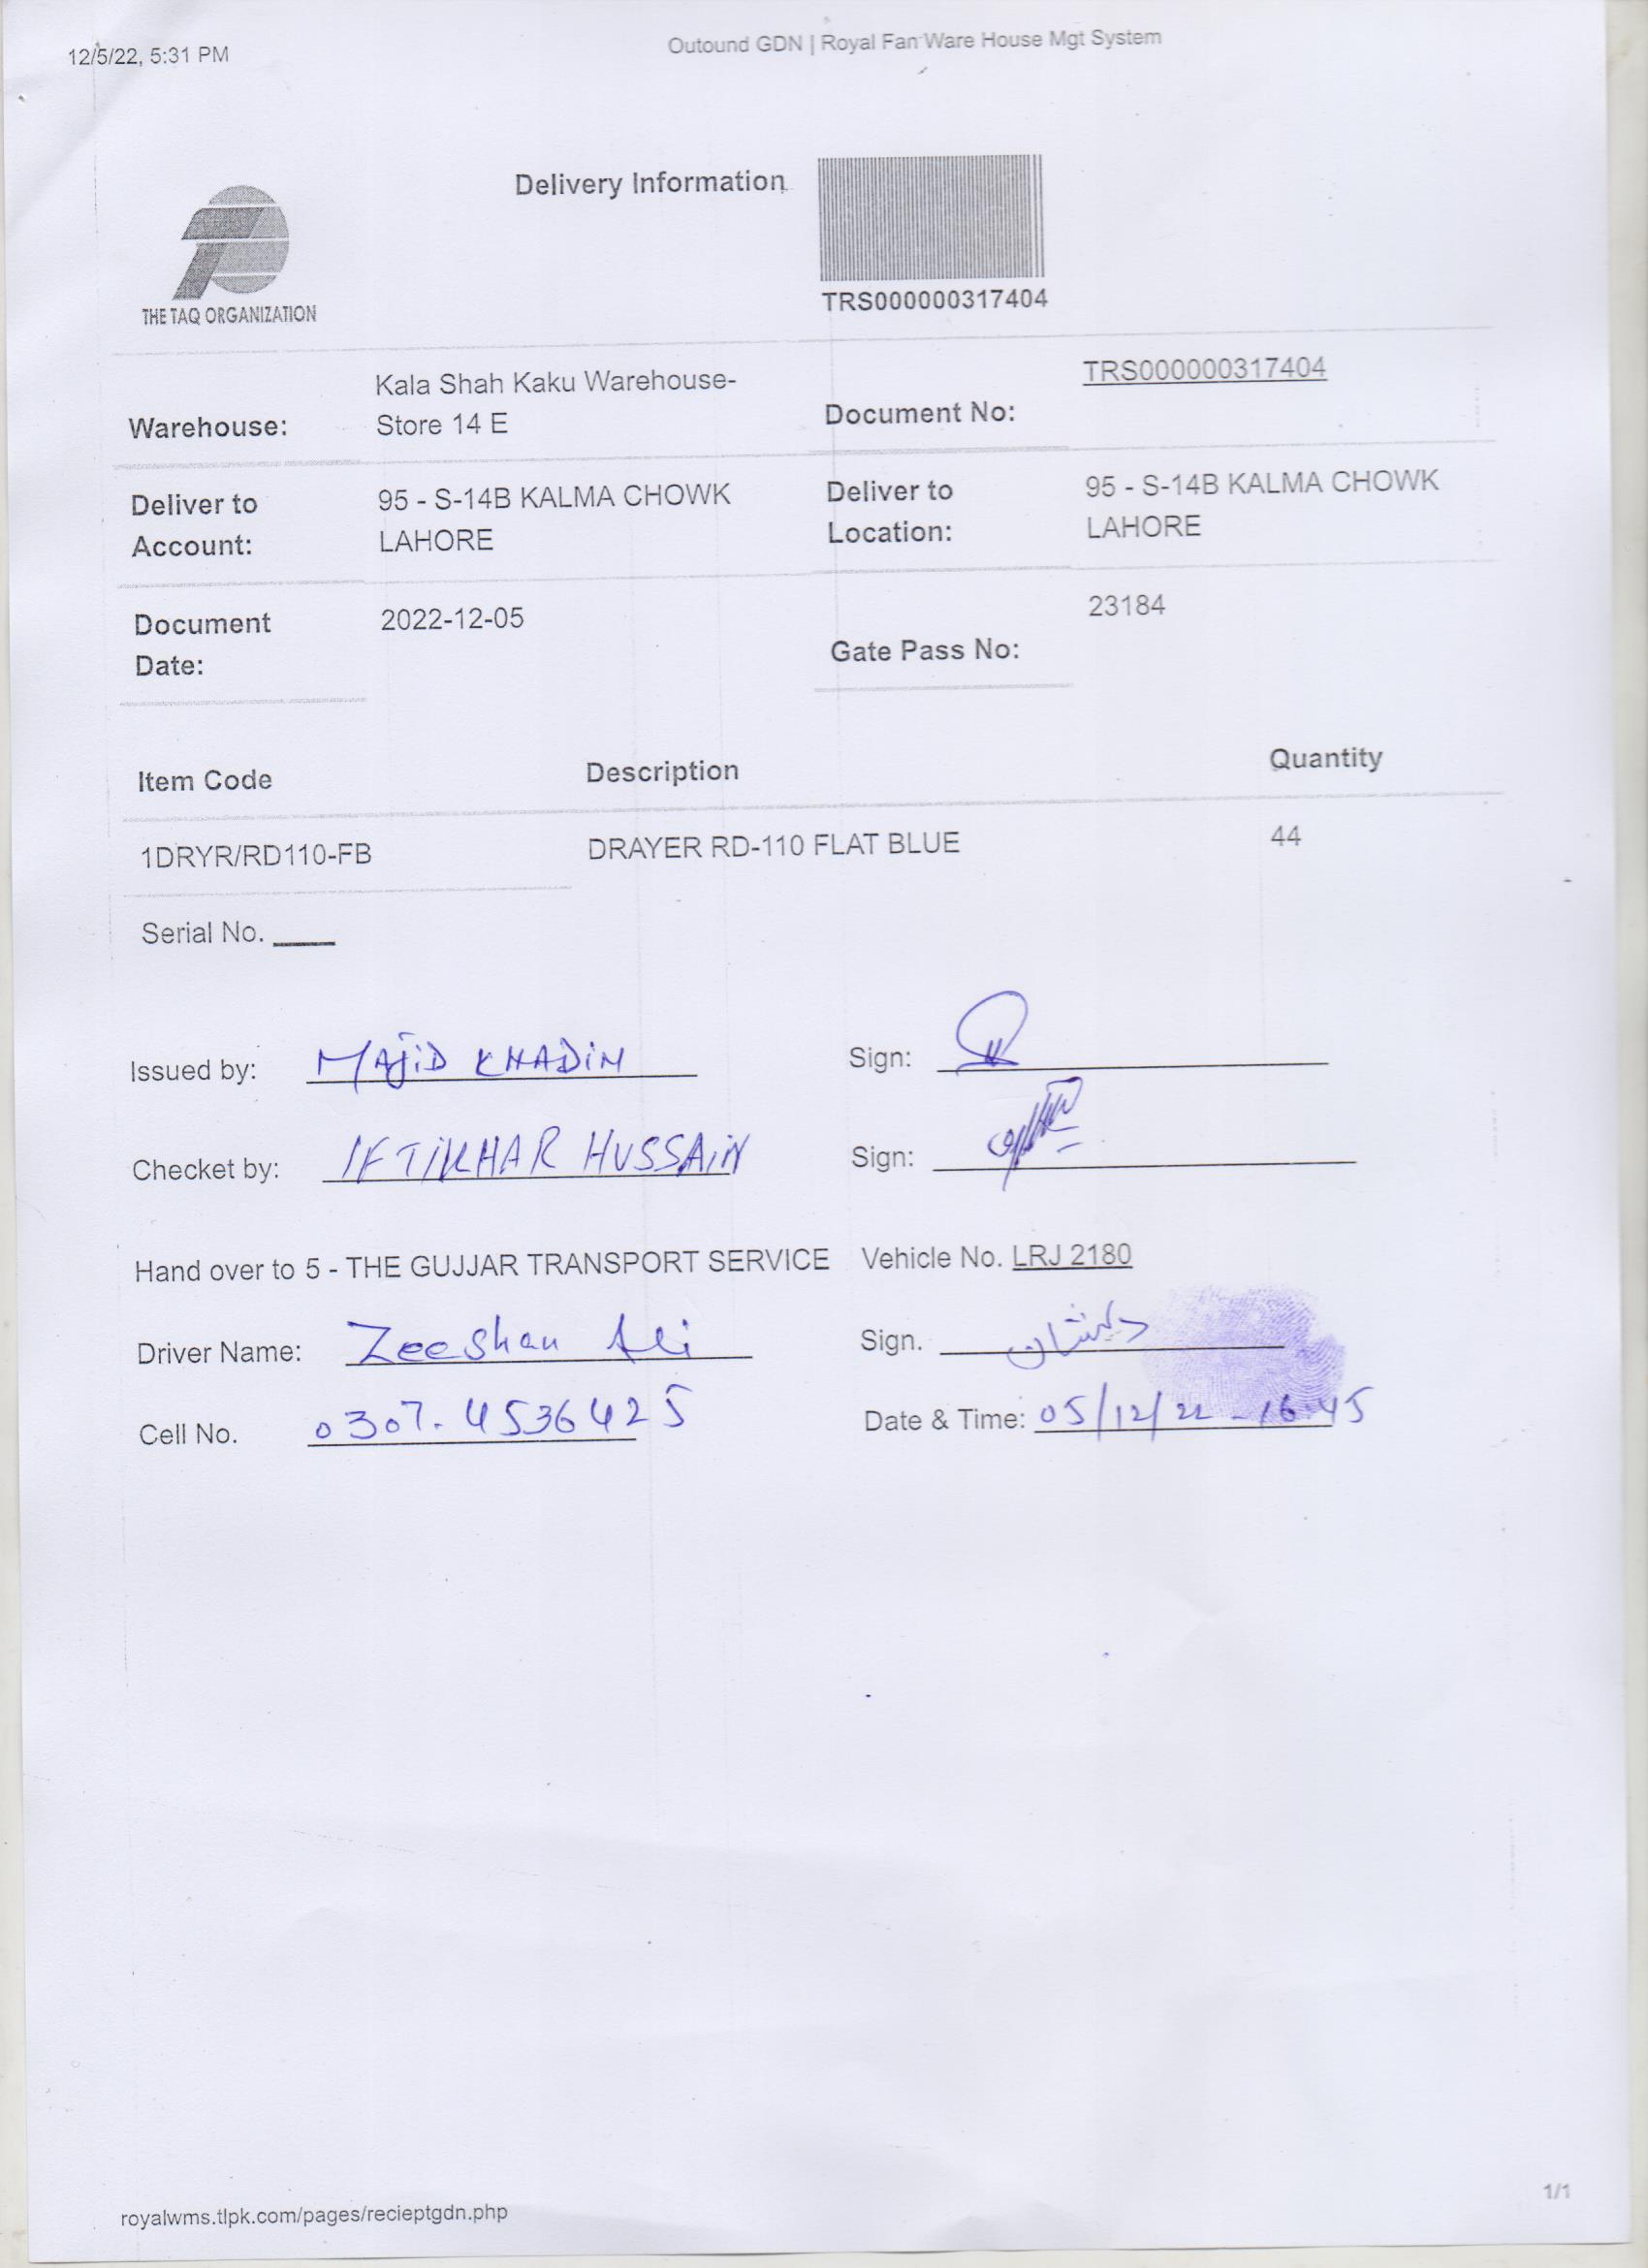 12/5/22, 5:31 PM
Outound GDN | Royal Fan Ware House Mgt System
Delivery Information
THE TAQ ORGANIZATION
TRS000000317404
Warehouse: Kala Shah Kaku Warehouse-
Store 14 E
Document No: TRS000000317404
Deliver to
Account: 95 - S-14B KALMA CHOWK
LAHORE
Deliver to
Location: 95 - S-14B KALMA CHOWK
LAHORE
Document
Date: 2022-12-05
Gate Pass No: 23184
Item Code Description Quantity
1DRYR/RD110-FB DRAYER RD-110 FLAT BLUE 44
Serial No.
Issued by: MAJID KHADIM Sign:
Checket by: IFTIKHAR HUSSAIN Sign:
Hand over to 5 - THE GUJJAR TRANSPORT SERVICE Vehicle No. LRJ 2180
Driver Name: Zeeshan Ali Sign. ذیشان
Cell No. 0307-4536425 Date & Time: 05/12/22 - 16:45
royalwms.tlpk.com/pages/recieptgdn.php
1/1